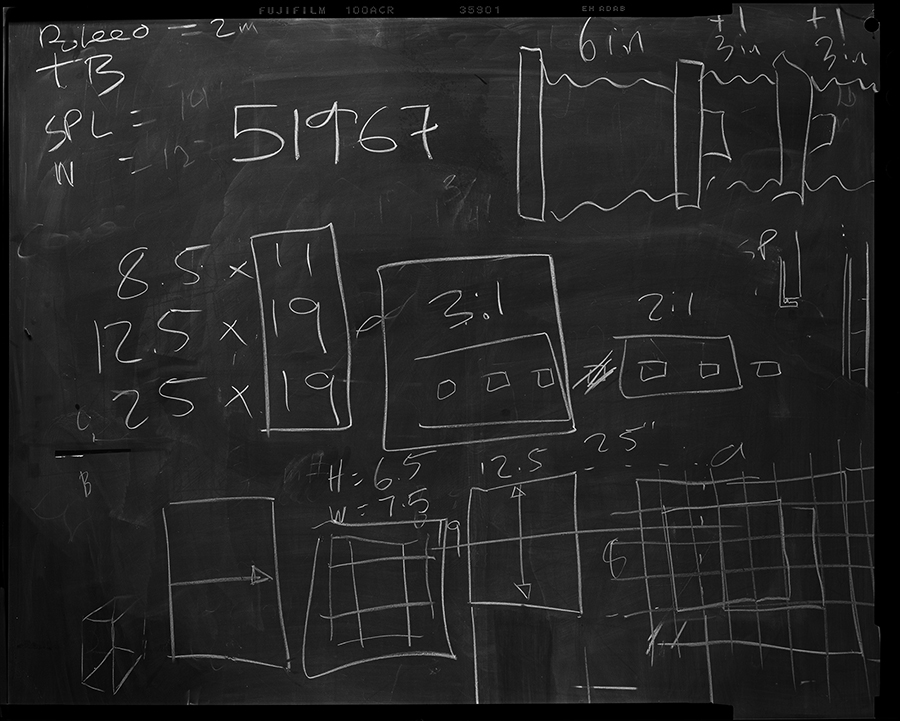 FUJIFILM 100ACR 35901
= 2m
+ B
SPL =
W = 12
51967
6in +1 3in +1 3in
8.5 x 11
12.5 x 19
25 x 19
3:1
2:1
SP
H = 6.5
W = 7.5
19
12.5
25"
a
B
8